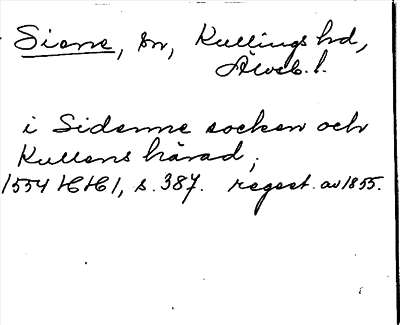 Siene, sn, Kullings hd,
Älvsb. l.
i Sidenne socken och
Kullens härad,
1554 HH 1, s. 387. regest. av 1855.